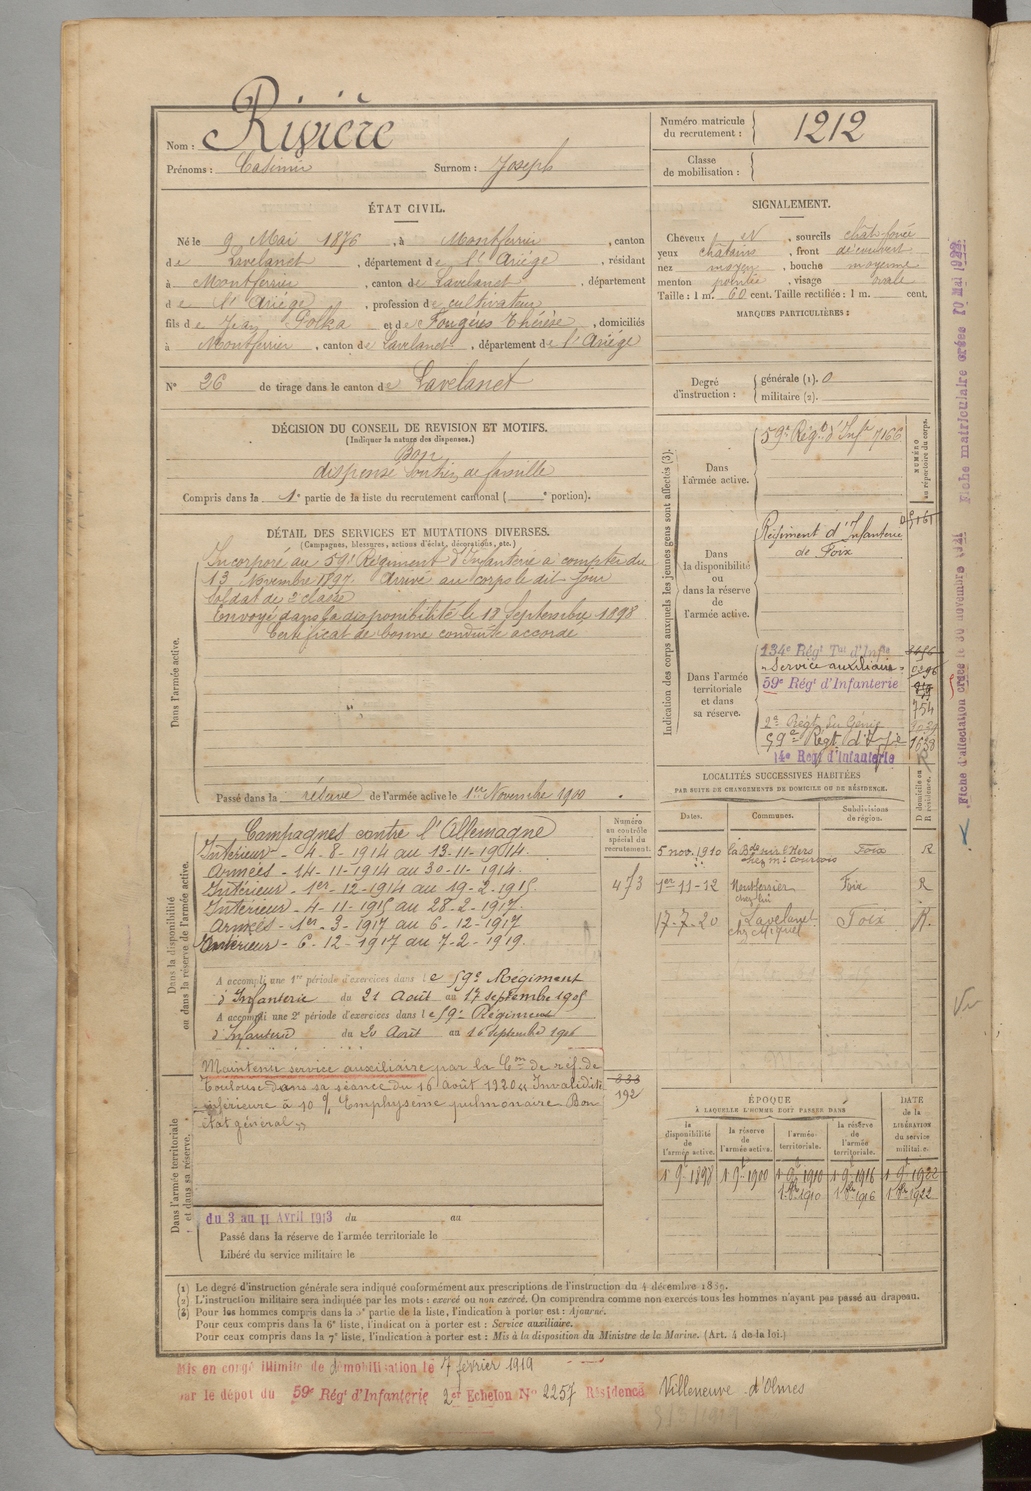 Rivière
Nom :
Prénoms : Casimir Surnom : Joseph
Numéro matricule du recrutement : 1212
Classe de mobilisation :
ÉTAT CIVIL.
Né le 9 Mai 1876, à Montferrier, canton
de Lavelanet, département de l'Ariége, résidant
à Montferrier, canton de Lavelanet, département
de l'Ariége, profession de cultivateur
fils de Jean Polka et de Fougères Thérèse, domiciliés
à Montferrier, canton de Lavelanet, département de l'Ariége
N° 26 de tirage dans le canton de Lavelanet
SIGNALEMENT.
Cheveux et N, sourcils chât foncé
yeux châtains, front découvert
nez moyen, bouche moyenne
menton pointée, visage ovale
Taille : 1 m. 60 cent. Taille rectifiée : 1 m. cent.
MARQUES PARTICULIÈRES :
Degré d'instruction : générale (1). 0
militaire (2).
DÉCISION DU CONSEIL DE REVISION ET MOTIFS.
(Indiquer la nature des dispenses.)
Bon
dispensé soutien de famille
Compris dans la 1e partie de la liste du recrutement cantonal ( e portion).
DÉTAIL DES SERVICES ET MUTATIONS DIVERSES.
(Campagnes, blessures, actions d'éclat, décorations, etc.)
Dans l'armée active.
Incorporé au 59e Régiment d'Infanterie à compter du
13 Novembre 1897. Arrivé au corps le dit jour
Soldat de 2e classe
Envoyé dans la disponibilité le 18 Septembre 1898
Certificat de bonne conduite accordé
Passé dans la réserve de l'armée active le 1er Novembre 1900
Indication des corps auxquels les jeunes gens sont affectés (3).
NUMÉRO au répertoire du corps.
Dans l'armée active.
59e Régt d'Infie 7166
Dans la disponibilité ou dans la réserve de l'armée active.
Régiment d'Infanterie
de Foix
Dans l'armée territoriale et dans sa réserve.
134e Régt Tal d'Infie
"Service auxiliaire"
59e Régt d'Infanterie
754
2e Régt du Génie
59e Régt d'Infie 1638
14e Regt d'Infanterie
LOCALITÉS SUCCESSIVES HABITÉES
PAR SUITE DE CHANGEMENTS DE DOMICILE OU DE RÉSIDENCE.
D domicile ou R résidence.
Dates. Communes. Subdivisions de région.
5 nov. 1910 la Bde sur l'Hers chez Mr Courtois Foix R
1er-11-12 Montferrier chez lui Foix R
17-7-20 Lavelanet chez Miquel Foix R.
Dans la disponibilité ou dans la réserve de l'armée active.
Numéro au contrôle spécial du recrutement.
473
Campagnes contre l'Allemagne
Intérieur - 4-8-1914 au 13-11-1914.
Armées - 14-11-1914 au 30-11-1914.
Intérieur - 1er-12-1914 au 19-2-1915
Intérieur - 4-11-1915 au 28-2-1917.
Armées - 1er-3-1917 au 6-12-1917
Intérieur - 6-12-1917 au 7-2-1919.
A accompli une 1re période d'exercices dans le 59e Régiment
d'Infanterie du 21 Août au 17 septembre 1905
A accompli une 2e période d'exercices dans le 59e Régiment
d'Infanterie du 20 Août au 16 septembre 1906
Dans l'armée territoriale et dans sa réserve.
Maintenu service auxiliaire par la Con de réf. de
Toulouse dans sa séance du 16 août 1920 "Invalidité
inférieure à 10 % Emphysème pulmonaire Bon
état général"
333
192
du 3 au 11 Avril 1913 du au
Passé dans la réserve de l'armée territoriale le
Libéré du service militaire le
ÉPOQUE
À LAQUELLE L'HOMME DOIT PASSER DANS
DATE de la LIBÉRATION du service militaire.
la disponibilité de l'armée active. la réserve de l'armée active. l'armée territoriale. la réserve de l'armée territoriale.
1 9e 1898 1 9e 1900 1 9e 1910 1 9e 1916 1 9e 1922
1 8r 1910 1 8r 1916 1 8r 1922
(1) Le degré d'instruction générale sera indiqué conformément aux prescriptions de l'instruction du 4 décembre 1889.
(2) L'instruction militaire sera indiquée par les mots : exercé ou non exercé. On comprendra comme non exercés tous les hommes n'ayant pas passé au drapeau.
(3) Pour les hommes compris dans la 5e partie de la liste, l'indication à porter est : Ajourné.
Pour ceux compris dans la 6e liste, l'indication à porter est : Service auxiliaire.
Pour ceux compris dans la 7e liste, l'indication à porter est : Mis à la disposition du Ministre de la Marine. (Art. 4 de la loi.)
Mis en congé illimité de démobilisation le 7 février 1919
par le dépot du 59e Régt d'Infanterie 2er Echelon N° 2257 Résidence Villeneuve d'Olmes
Fiche d'affectation créée le 30 novembre 1921
Fiche matriculaire créée 10 Mai 1922